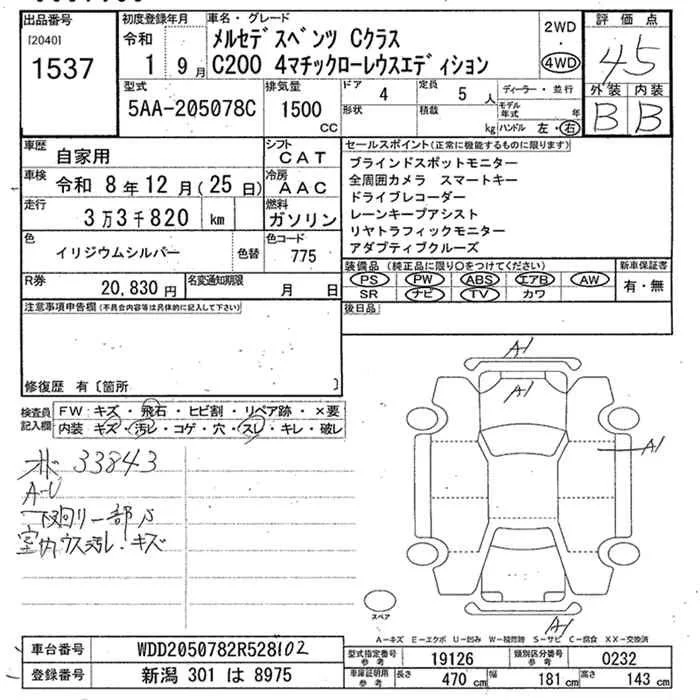 出品番号
[2040]
1537
初度登録年月
令和
1 9月
車名・グレード
メルセデスベンツ Cクラス
C200 4マチックローレウスエディション
2WD
・
4WD
評価点
4.5
外装 内装
B B
型式
5AA-205078C
排気量
1500
cc
ドア
4
形状
定員
5 人
積載
kg
ディーラー・並行
モデル年式 年
ハンドル 左・右
車歴
自家用
シフト
CAT
車検
令和 8年 12月(25日)
冷房
AAC
走行
3万3千820 km
燃料
ガソリン
色
イリジウムシルバー
色替
色コード
775
R券
20,830円
名変通知期限
月 日
セールスポイント(正常に機能するものに限ります)
ブラインドスポットモニター
全周囲カメラ スマートキー
ドライブレコーダー
レーンキープアシスト
リヤトラフィックモニター
アダプティブクルーズ
装備品(純正品に限り○をつけてください)
PS PW ABS エアB AW
SR ナビ TV カワ
新車保証書
有・無
後日品
注意事項申告欄(不具合内容等は具体的に記入して下さい)
修復歴 有〔箇所 〕
検査員記入欄
FW: キズ・飛石・ヒビ割・リペア跡・×要
内装: キズ・汚レ・コゲ・穴・スレ・キレ・破レ
33843
A-U
下回り一部S
室内ウス汚レ・キズ
A1
A1
A1
A1
スペア
A-キズ E-エクボ U-凹み W-補修跡 S-サビ C-腐食 XX-交換済
車台番号
WDD2050782R528102
登録番号
新潟 301 は 8975
型式指定番号 参考
19126
類別区分番号 参考
0232
車庫証明用 参考
長さ 470 cm
幅 181 cm
高さ 143 cm